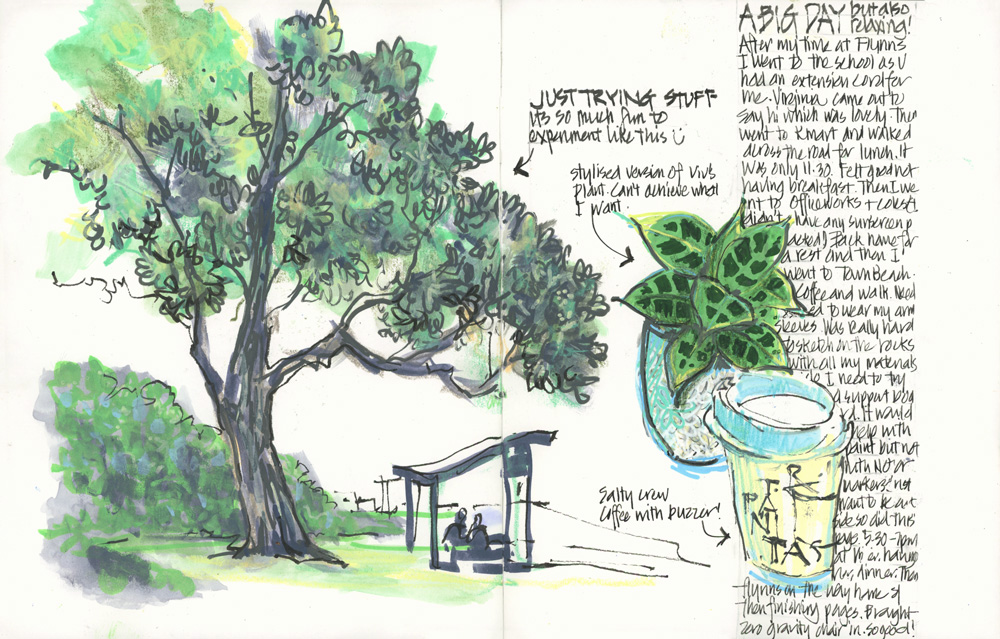 JUST TRYING STUFF
it's so much fun to
experiment like this
stylised version of Viv's
plant. Can't achieve what
I want.
Salty crew
Coffee with buzzer!
A BIG DAY but also
relaxing!
After my time at Flynns
I went to the school as V
had an extension cord for
me. Virginia came out to
say hi which was lovely. Then
went to Kmart and walked
across the road for lunch. It
was only 11.30. Felt good not
having breakfast. Then I we
nt to Officeworks + Coles (I
didn't have any sunscreen p
acked) Back home for
a rest and then I
went to Town Beach.
Coffee and walk. Need
ed to wear my arm
sleeves. Was really hard
to sketch on the rocks
with all my materials
I need to try
a support boa
rd. It would
help with
paint but not
with
markers! not
want to be out
side so did this
page. 5.30-7pm
at
dinner. Then
flynns on the way home &
then finishing pages. Brought
zero gravity chair in. so good!